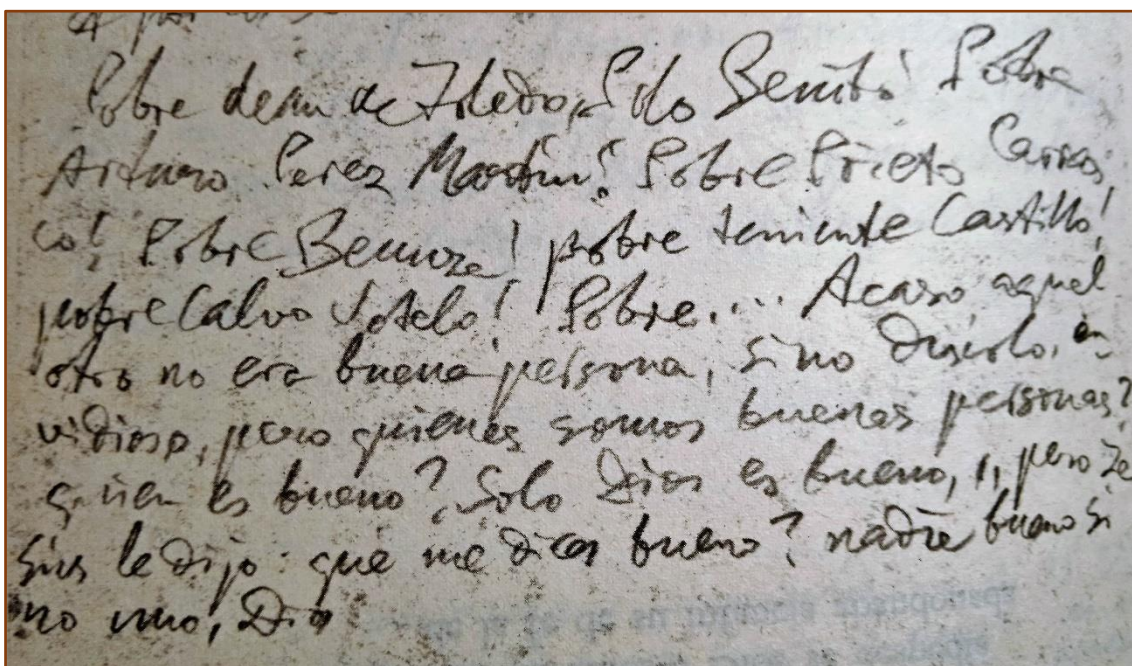 Pobre dean de Toledo, Polo Benito! Pobre
Arturo Perez Martin! Pobre Prieto Carras
co! Pobre ! pobre teniente Castillo!
pobre Calvo Sotelo! Pobre... Acaso aquel
otro no era buena persona, sino díscolo, en
vidioso, pero quienes somos buenas personas?
quien es bueno? Solo Dios es bueno, pero Je
sus le dijo: qué me dices bueno? nadie bueno si
no uno, Dios